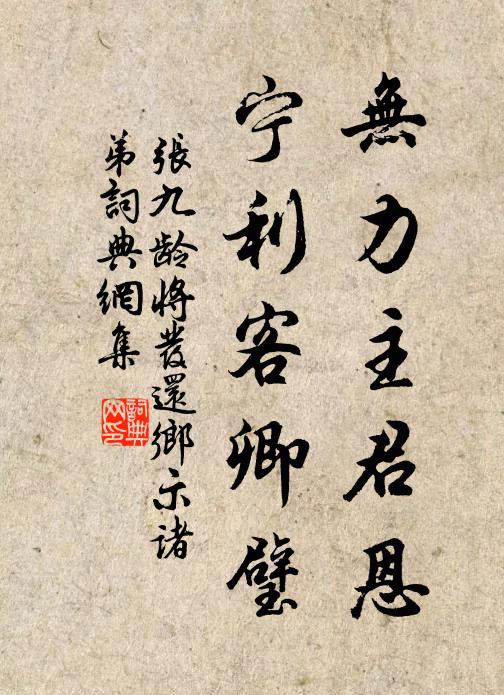 無力主君恩
宁利客卿璧
張九龄將發還鄉示諸
弟詞典網集
詞典
网印